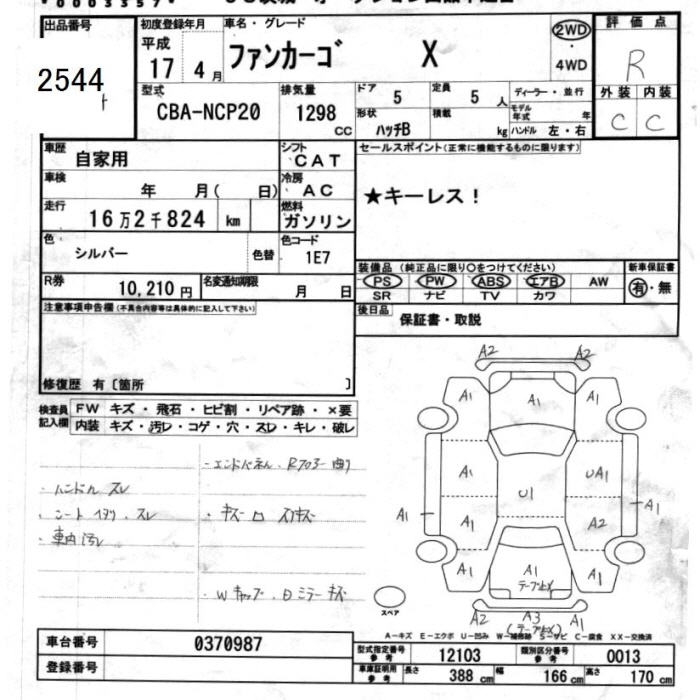 出品番号
2544
初度登録年月
平成
17 4 月
車名・グレード
ファンカーゴ X
2WD
・
4WD
評価点
R
外装 内装
C C
型式
CBA-NCP20
排気量
1298
CC
ドア
5
定員
5 人
ディーラー・並行
モデル年式 年
形状
ハッチB
積載
kg
ハンドル 左・右
車歴
自家用
シフト
CAT
車検
年 月( 日)
冷房
AC
走行
16万2千824 km
燃料
ガソリン
色
シルバー
色替
色コード
1E7
R券
10,210円
名変通知期限
月 日
セールスポイント(正常に機能するものに限ります)
★キーレス!
装備品 (純正品に限り○をつけてください)
新車保証書
PS PW ABS エアB AW
SR ナビ TV カワ
有・無
後日品
保証書・取説
注意事項申告欄(不具合内容等は具体的に記入して下さい)
修復歴 有〔箇所 〕
検査員記入欄
FW キズ・飛石・ヒビ割・リペア跡・×要
内装 キズ・汚レ・コゲ・穴・スレ・キレ・破レ
・エンドパネル、Rフロアー曲り
・ハンドル スレ
・シート スレ
・車内汚レ
・Wキャップ、ミラーキズ
A2 A2
A1 A1 A1
A1 UA1
U1
A1 A1 A2 A1
A1 A1 A1
テープ上X
A2 A3 A1
(テープ上X)
スペア
A-キズ E-エクボ U-凹み W-補修跡 S-サビ C-腐食 XX-交換済
車台番号 0370987
登録番号
型式指定番号 参考 12103
類別区分番号 参考 0013
車庫証明用 参考
長さ 388 cm
幅 166 cm
高さ 170 cm